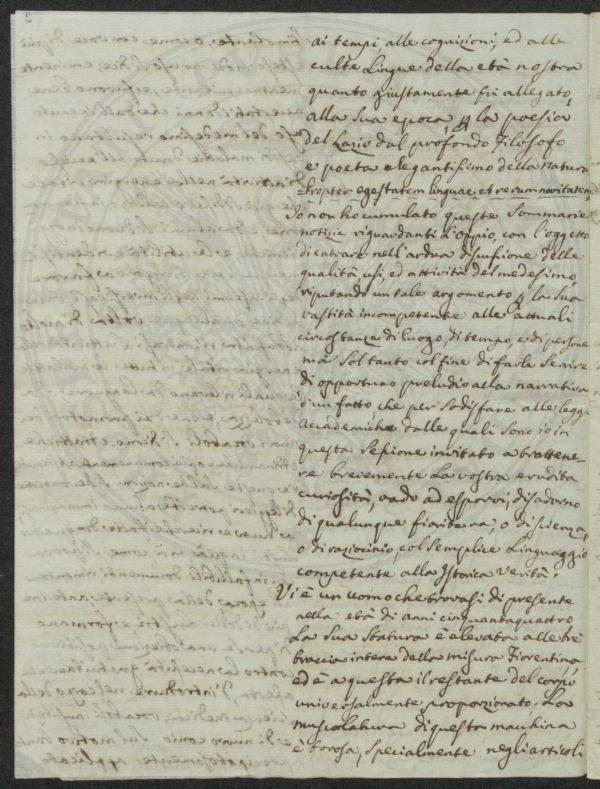 ai tempi, alle cognizioni, ed alle
culte Lingue della età nostra
quanto giustamente fù allegato,
alla sua epoca, p la poesia
del Lazio dal profondo Filosofo
e poeta elegantissimo della Natura
=Propter egestatem linguae, et rerum naritatem=
Io non ho cumulato queste Sommarie
notizie riguardanti L'Oppio, con l'oggetto
di entrare nell'ardua discussione delle
qualità usi, ed attività del medesimo,
riputando un tale argomento p la sua
vastità incompetente alle attuali
circostanze di luogo, di tempo, e di persone
mà soltanto col fine di farle servire
di opportuno preludio alla narrativa
d'un fatto, che per sodisfare alle leggi
Accademiche dalle quali sono io in
questa Sessione invitato a trattene-
re brevemente La vostra erudita
curiosità, vado ad esporvi, disadorno
di qualunque fioritura, o di scienza,
o di raziocinio, col semplice Linguaggio
competente alla Istorica verità.
Vi è un uomo che trovasi di presente
nella età di anni cinquantaquattro
La sua Statura è elevata alle tre
braccia intere della misura Fiorentina,
ed è a questa il restante del corpo
universalmente proporzionato. La
muscolatura di questa macchina
è torosa, specialmente negli articoli